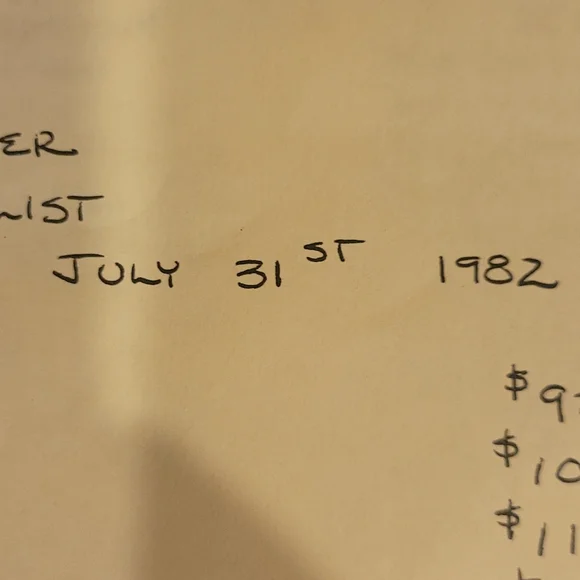 ER
LIST
JULY 31ST 1982
$9
$10
$11